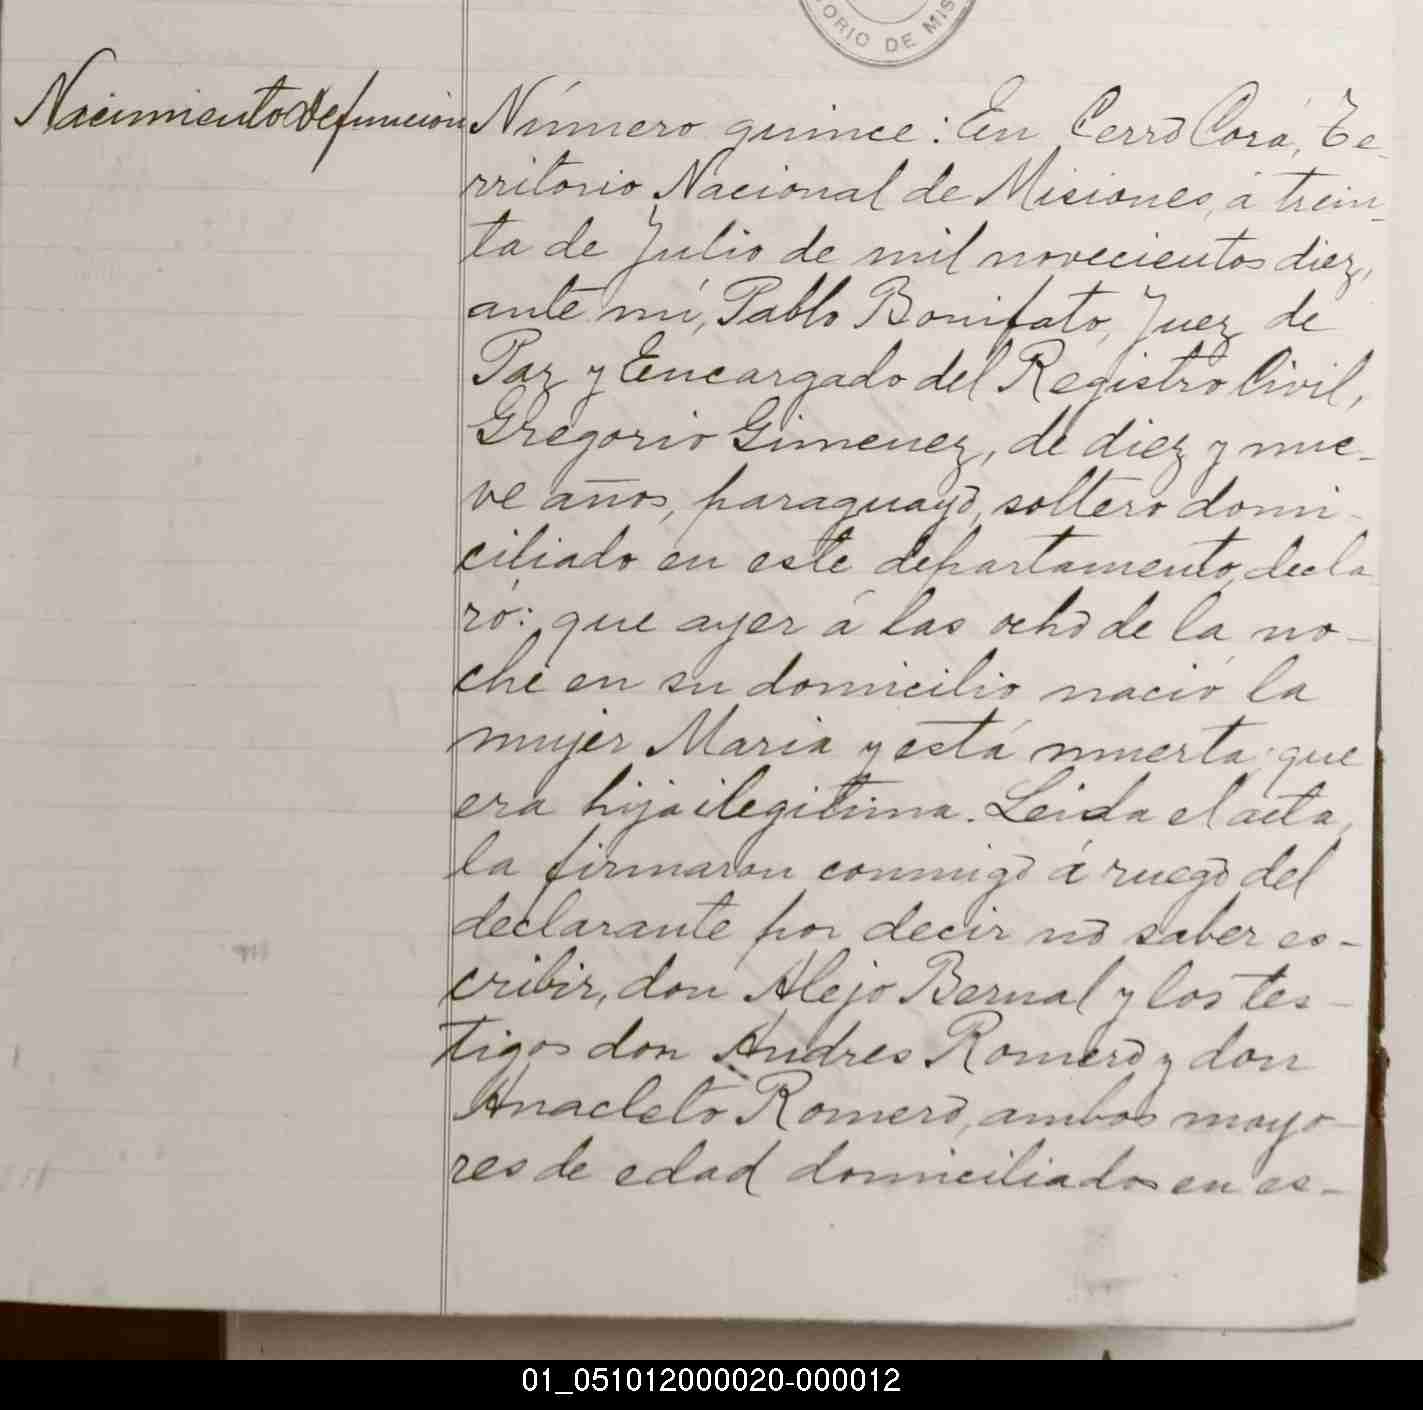 ORIO DE MIS
Nacimiento Defuncion
Número quince: En Cerro Corá, Te-
rritorio Nacional de Misiones, á trein-
ta de Julio de mil novecientos diez,
ante mí, Pablo Bonifato, Juez de
Paz y Encargado del Registro Civil,
Gregorio Gimenez, de diez y nue-
ve años, paraguayo, soltero domi-
ciliado en este departamento, decla
ró: que ayer á las ocho de la no-
che en su domicilio nació la
mujer Maria y está muerta; que
era hija ilegitima. Leida el acta,
la firmaron conmigo á ruego del
declarante por decir no saber es-
cribir, don Alejo Bernal y los tes-
tigos don Andres Romero y don
Anacleto Romero, ambos mayo-
res de edad domiciliados en es-
01_051012000020-000012